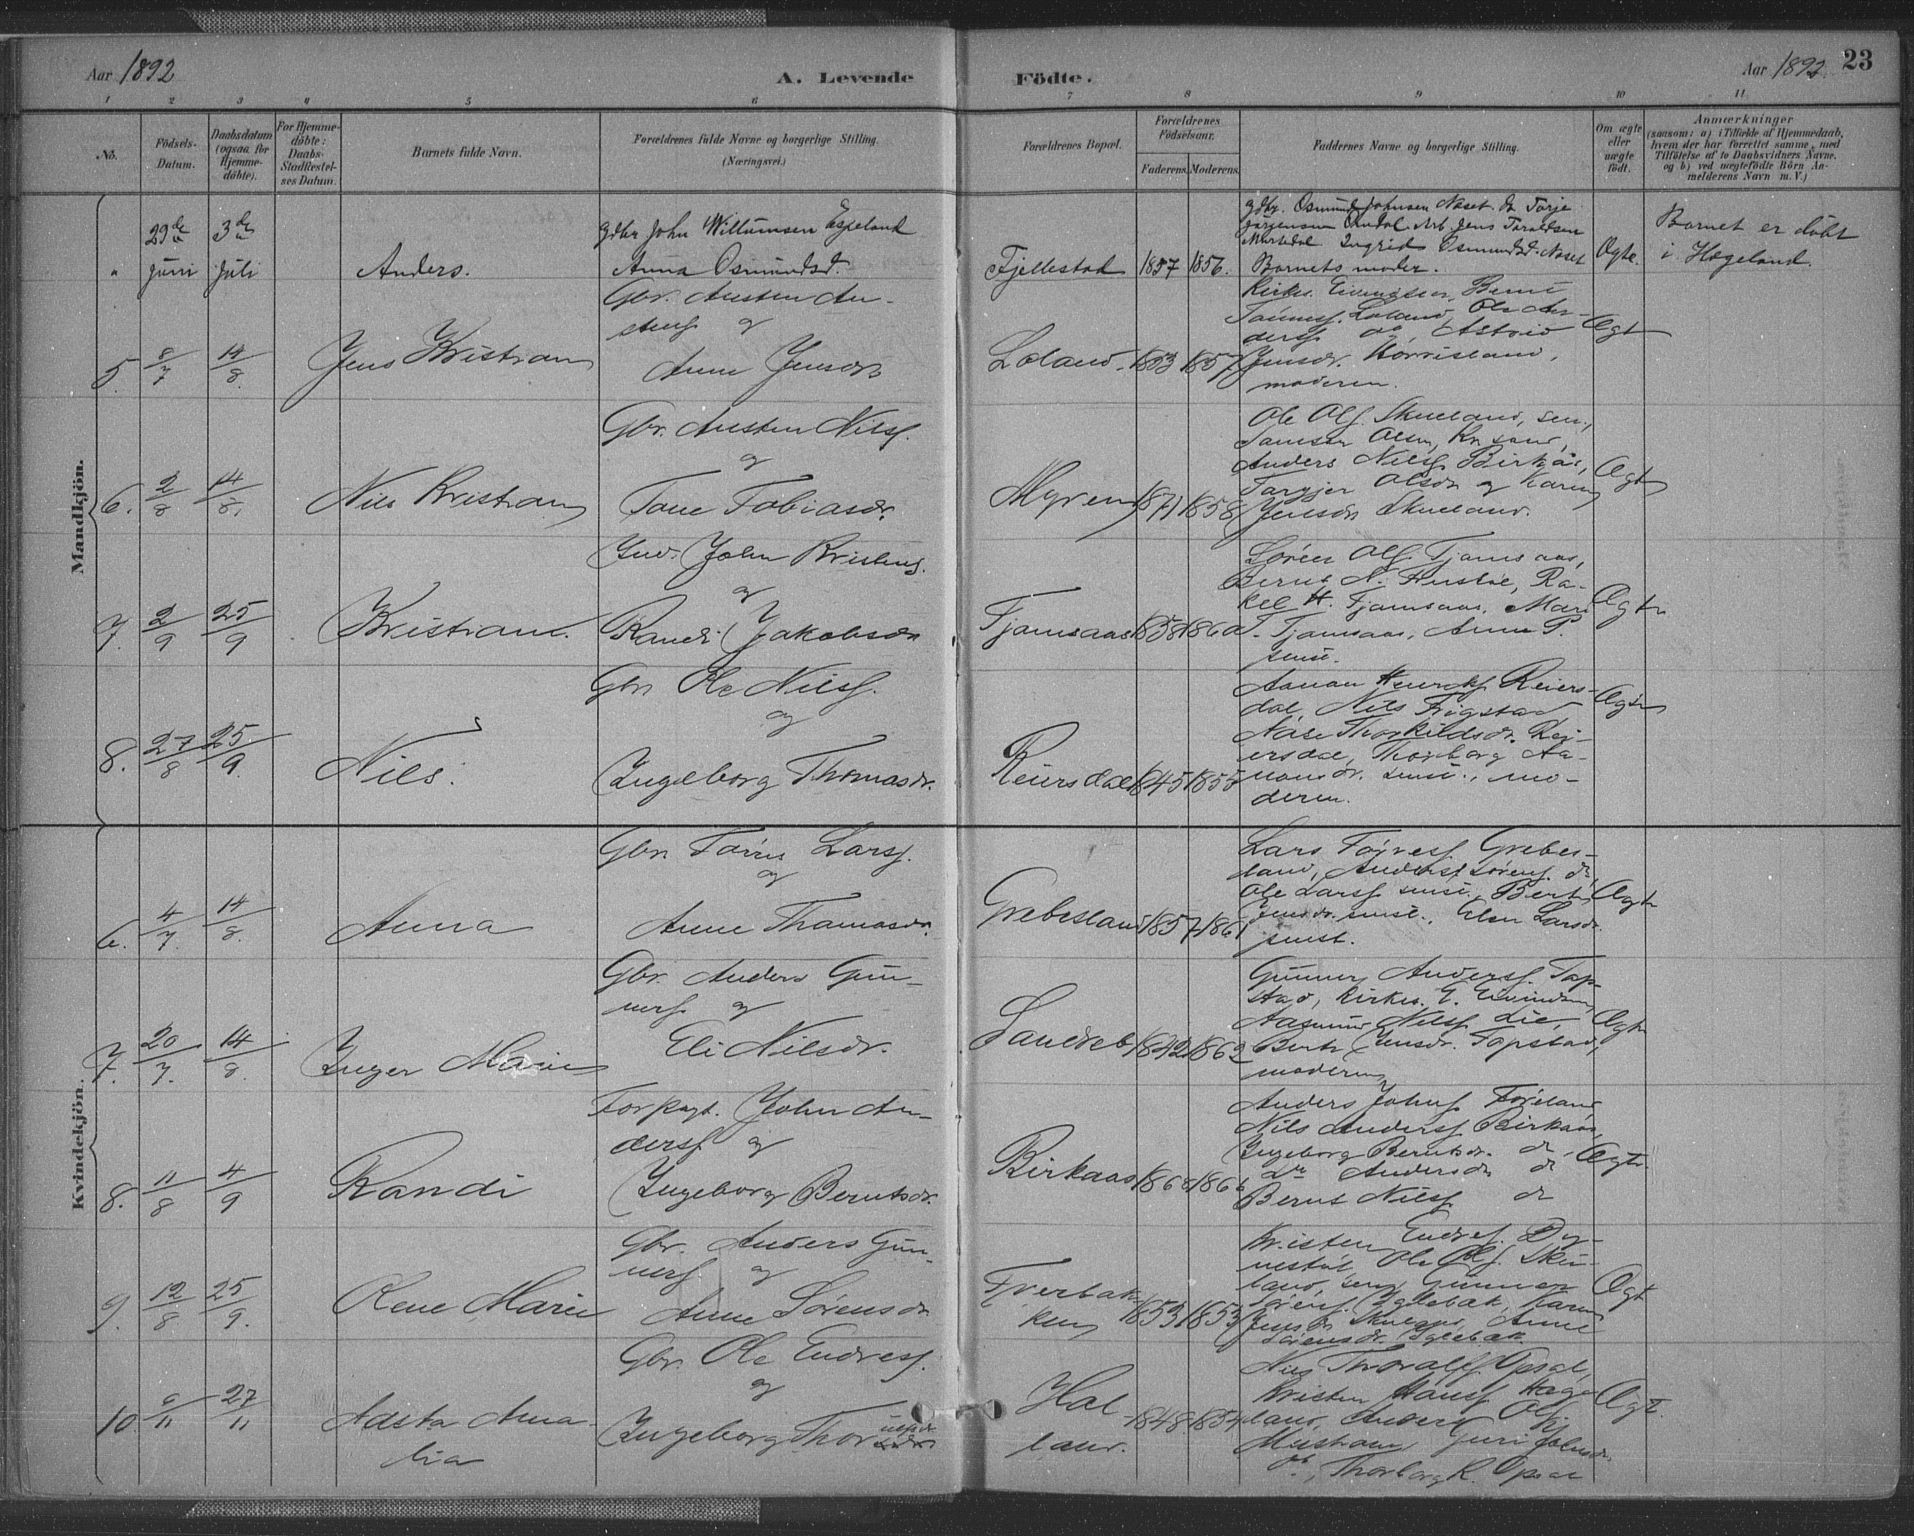 Aar 1892
A. Levende Födte.
Aar 1892 23
1 2 3 4 5 6 7 8 9 10 11
No.
Födsels-Datum.
Daabsdatum (ogsaa for Hjemme-döbte).
For Hjemme-döbte: Daabs-Stadfæstel-ses Datum.
Barnets fulde Navn.
Forældrenes fulde Navne og borgerlige Stilling. (Næringsvei.)
Forældrenes Bopæl.
Forældrenes Födselsaar. Faderens. Moderens.
Faddernes Navne og borgerlige Stilling.
Om ægte eller uægte födt.
Anmærkninger (saasom: a) i Tilfælde af Hjemmedaab, hvem der har forrettet samme, med Tilföielse af to Daabsvidners Navne, og b) ved uægtefödte Börn An-melderens Navn m. V.)
Mandkjön.
" 29de Juni 3die Juli Anders.
Gdbr John Willumsen Espeland
Anna Osmundsd.
Fjellestad 1857 1856.
gdbr. Osmund Johnsen Naset. Tarje
Jörgensen Omdal. Arb. Jens Taraldsen
Mortedal Ingrid Osmundsd. Naset
Barnets moder.
Ægte.
Barnet er döbt
i Hægeland.
5. 8/7 14/8 Jens Kristian
Gbr. Austen An-
stens. og
Anne Jensdr
Loland. 1853 1857
Kirkes. Eivindsen, Bernt
Tønness. Loland, Ole An-
ders. do, Astrid
Jensdr. Homesland,
moderen.
Ægte
6. 2/8 14/8. Nils Kristian
Gbr. Austen Nilss.
og
Tone Tobiasdr.
Myren 1871 1858
Ole Ols. Skueland, sen.,
Olsen, Kr.sand,
Anders Nilss. Birkås,
Targjer Olsdr og Karen
Jensdr Skueland.
Ægte
7. 2/9 25/9 Kristian.
Ind. John Kristens.
og
Randi Jakobsdr
Tjomsaas 1858 1860
Sören Ols. Tjomsaas,
Bernt N. Hustøl, Ra-
kel H. Tjomsaas, Mari
T. Tjomsaas, Anne P.
smst.
Ægte
8. 27/8 25/9. Nils.
Gbr. Ole Nilss.
og
Ingeborg Thomasdr.
Reiersdal 1845 1855
Aanon Henriks. Reiers-
dal, Nils Frigstad
Åse Thorkildsdr. Rei-
ersdal, Thorborg Aa-
nonsdr. smst., mo-
deren.
Ægte
Kvindekjön.
6. 4/7 14/8. Anna
Gbr. Tørres Larss.
og
Anne Thomasdr.
Grebesland 1857 1861
Lars Tøress. Grebes-
land, Anders Sørens. do,
Ole Larss. smst., Berte
Jensdr. smst., Elen Larsdr.
smst.
Ægte
7. 20/7. 14/8. Inger Marie
Gbr. Anders Gun-
ners. og
Eli Nilsdr.
Sandreb 1842 1862
Gunner Anderss. Top-
stad, Kirkes. E. Eivindsen,
Aasmund Nilss. Lie,
Berte Jensdr. Topstad,
moderen
Ægte
8. 11/8 4/9 Randi
Forpagt. John An-
derss. og
Ingeborg Berntsdr.
Birkaas 1868 1866
Anders Johns. Føreland
Nils Anderss. Birkaas,
Ingeborg Berntsdr. do,
do Andersdr do
Bernt Nilss. do
Ægte.
9. 12/8 25/9. Olene Marie
Gbr. Anders Gun-
ners. og
Anne Sørensdr
Tverbak-
ken 1853 1853
Kristen Endres. Dy-
nestøl, Ole Ols. Skue-
land, sen. Gunner
Sørens. Iglebæk, Karen
Jensdr Skueland, Anne
Sørensdr. Iglebæk.
Ægte
10. 9/11 27/11 Adsta Ama-
lia
Gbr. Ole Endress.
og
Ingeborg Thor
Høl-
land. 1848 1854
Nils Thoralfs. Opsal,
Kristen Hanss. Hæge-
land, Anders Ols.
Mustam, Guri Johnsdr.
do, Thorborg K. Opsal
Ægte.